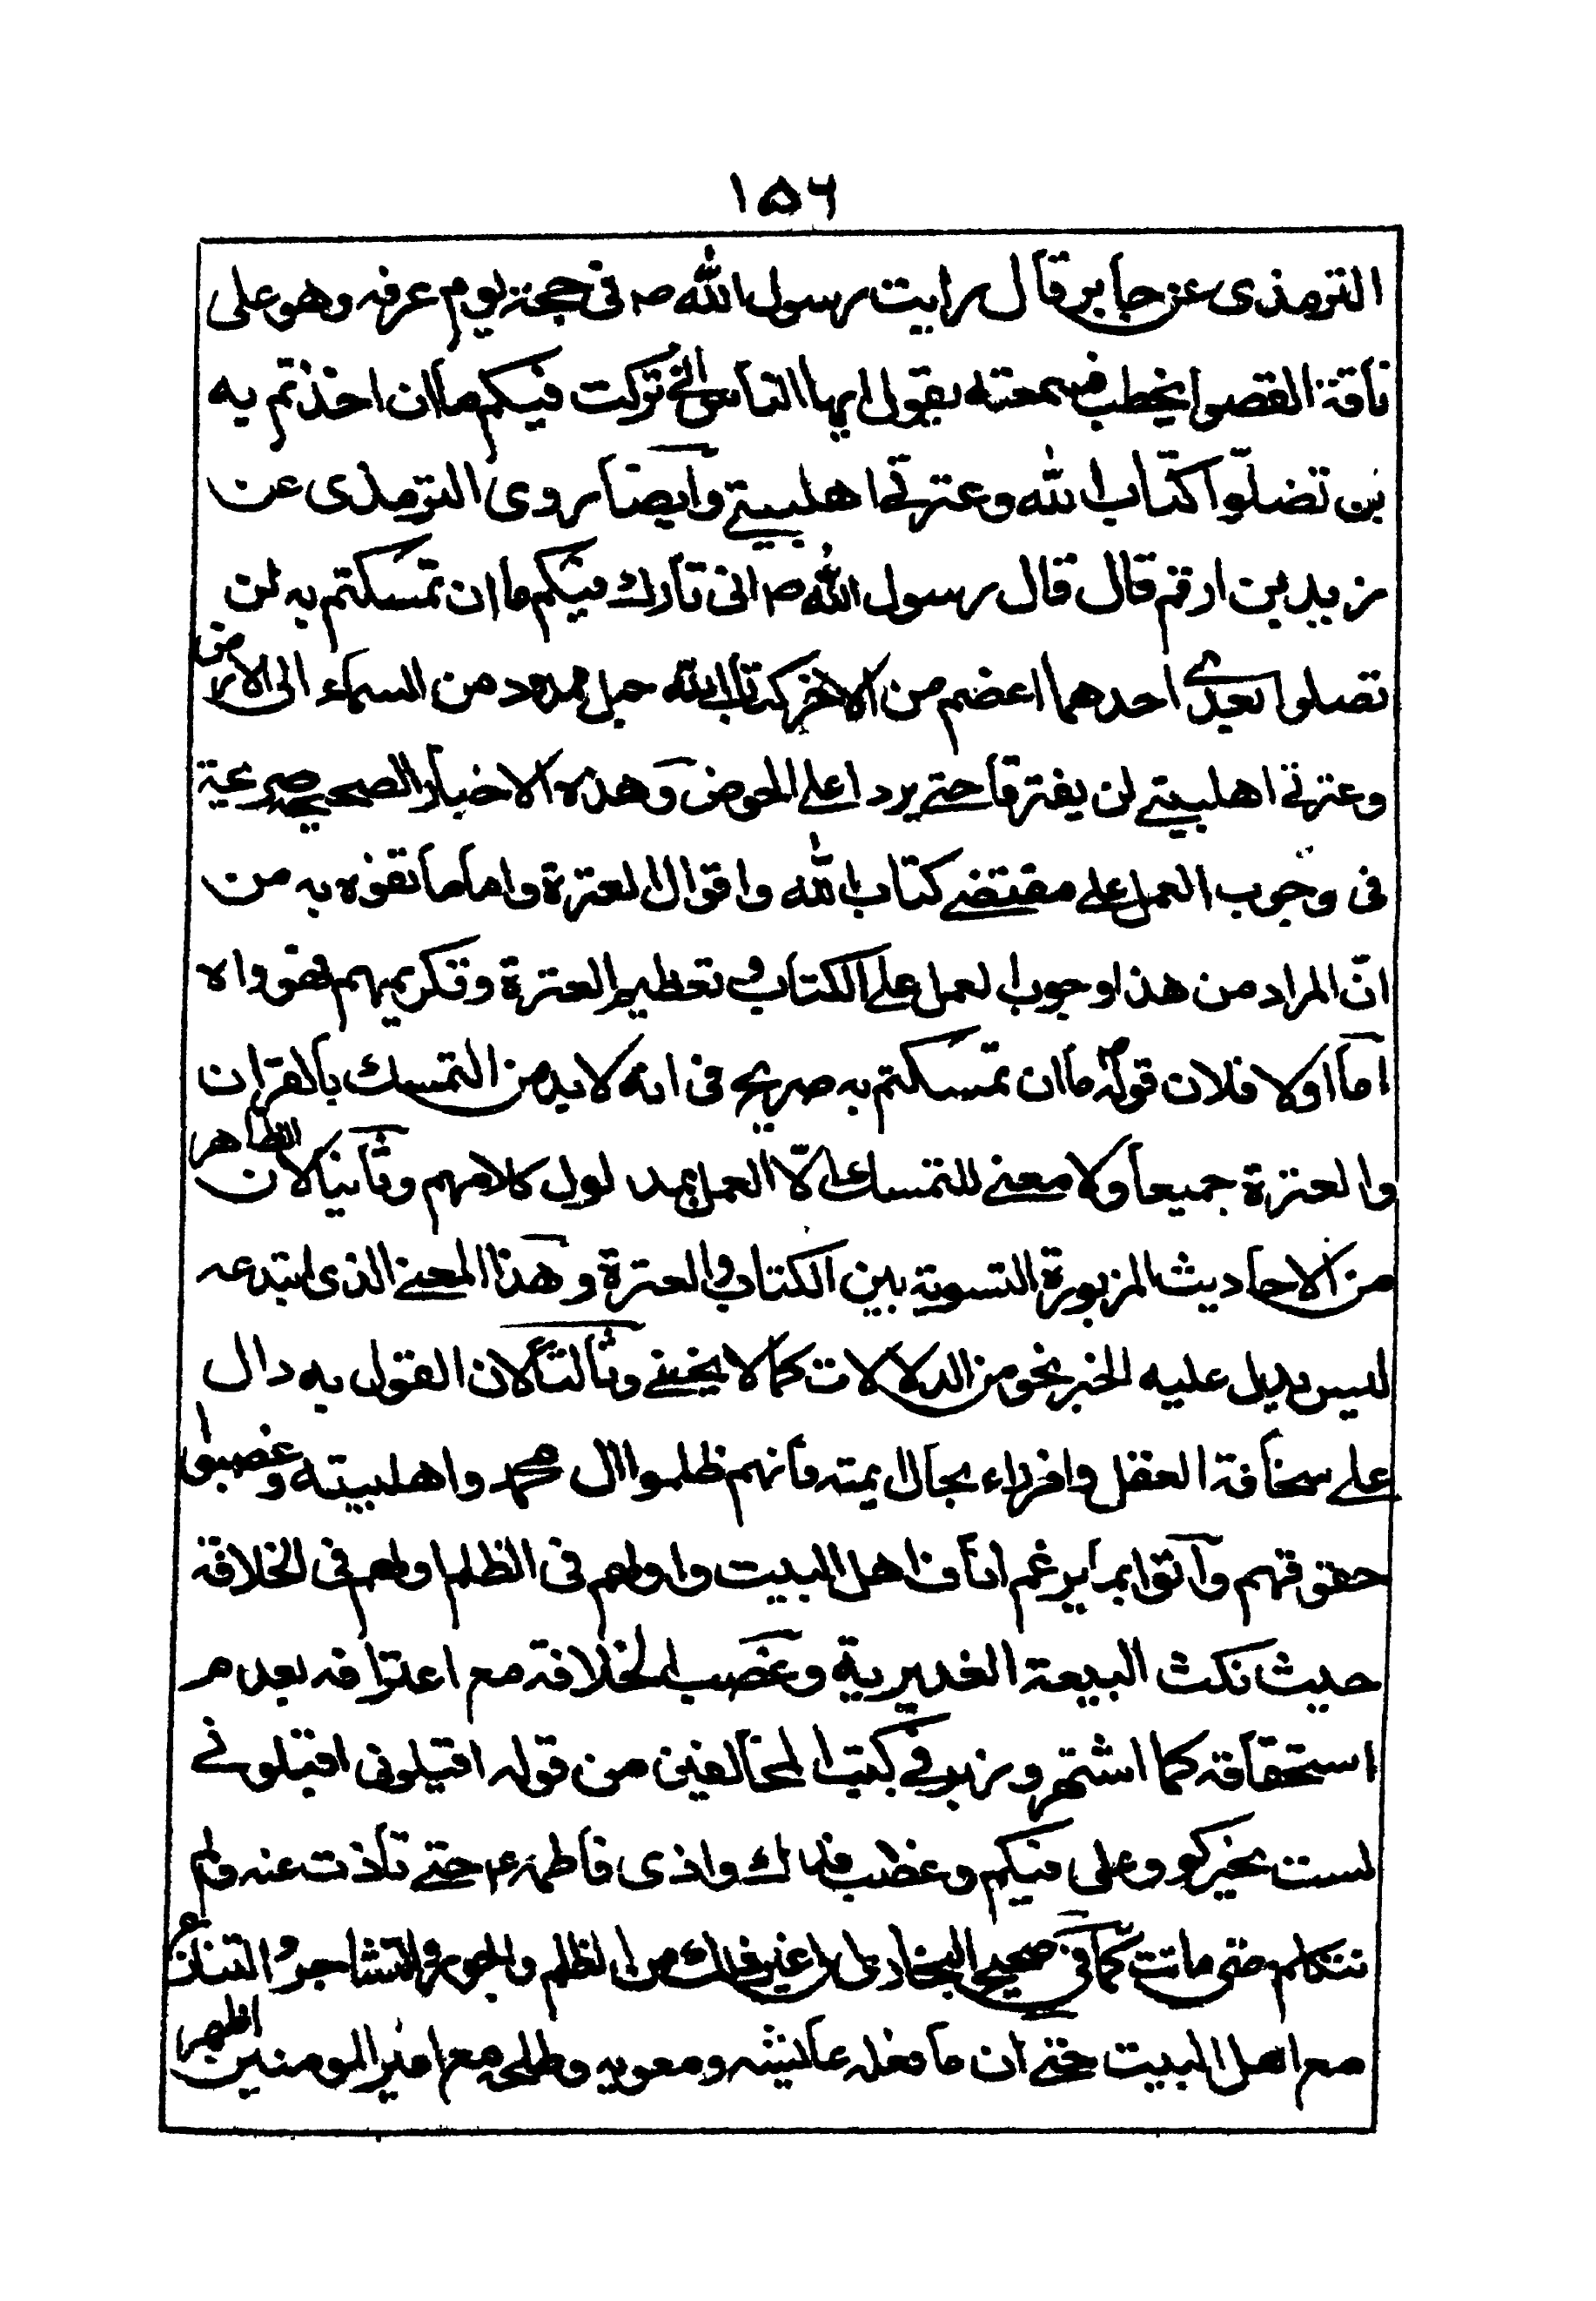 ١٥٦
الترمذی عن جابر قال رایت رسول الله ص فی حجته یوم عرفه وهو علی
ناقة القصوا یخطب فسمعته یقول ایها الناس انی ترکت فیکم ما ان اخذتم به
لن تضلّوا کتاب الله وعترتی اهلبیتی وایضا روی الترمذی عن
زید بن ارقم قال قال رسول الله ص انی تارک فیکم ما ان تمسکتم به لن
تضلوا بعدی احدهما اعضم من الاخر کتاب الله حبل ممدود من السماء الی الارض
وعترتی اهلبیتی لن یفترقا حتی یردا علی الحوض وهذه الاخبار الصحیحه صریحة
فی وجوب العمل علی مقتضی کتاب الله واقوال العترة واما ما تفوه به من
انّ المراد من هذا وجوب العمل علی الکتاب و تعظیم العترة وتکریمهم فهو واه
اما اولا فلان قوله ص ما ان تمسکتم به صریح فی انه لابد من التمسک بالقران
والعترة جمیعا ولا معنی للتمسک الّا العمل بمدلول کلامهم وثانیا لان الظاهر
من الاحادیث المزبورة التسویة بین الکتاب والعترة وهذا المعنی الذی ابتدعه
لیس یدل علیه الخبر بنحو من الدلالات کما لا یخفی وثالثا لان القول به دال
علی سخافة العقل وافراء بحال ایمته فانهم ظلموا ال محمد واهلبیته وغصبوا
حقوقهم وآتوا بما یرغم اناف اهل البیت واولهم فی الظلم اولهم فی الخلافة
حیث نکث البیعة الغدیریة وغصب الخلافة مع اعترافه بعدم
استحقاقه کما اشتهر وزبر فی کتب المخالفین من قوله اقیلونی اقیلونی
لست بخیرکم وعلی فیکم وغضب فدک واذی فاطمه ع حتی تأذت عنه ولم
تتکلم حتی ماتت کما فی صحیح البخاری الی غیر ذلک من الظلم والجور والتشاجر و التنازع
مع اهل البیت حتی ان ما فعله عایشه ومعویه وطلحه مع امیر المومنین اظهر